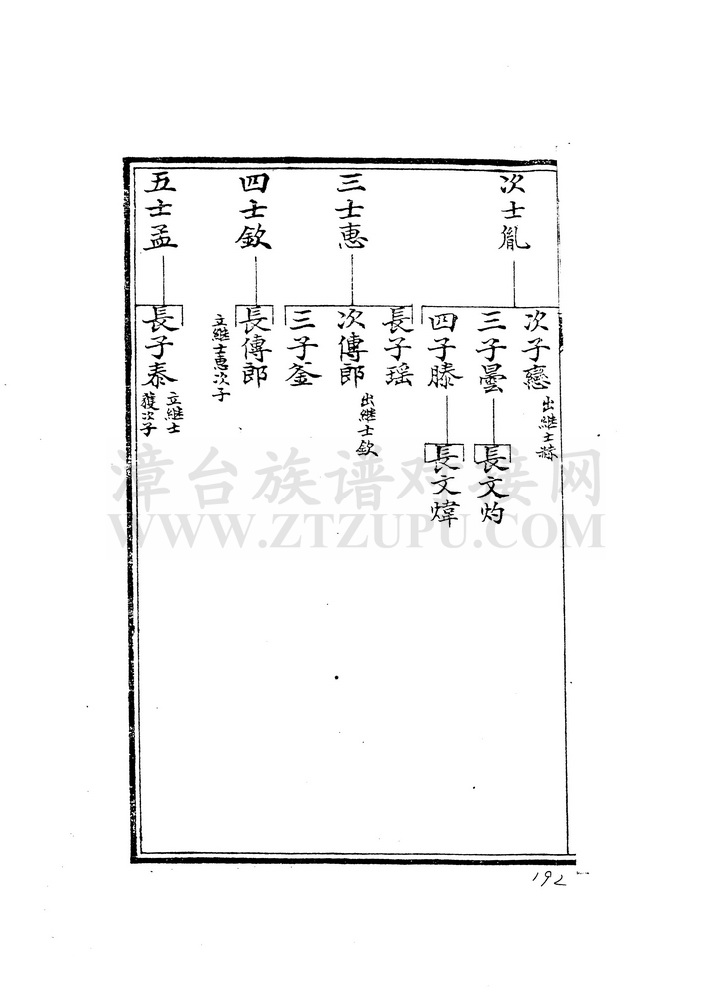 次士胤
次子戀
出繼士
三子曇
長文灼
四子滕
長文煒
三士惠
長子瑶
次傳郎
出繼士欽
三子釜
四士欽
長傳郎
立繼士惠次子
五士孟
長子泰
立繼士
獲次子
漳台族谱对接网
WWW.ZTZUPU.COM
192